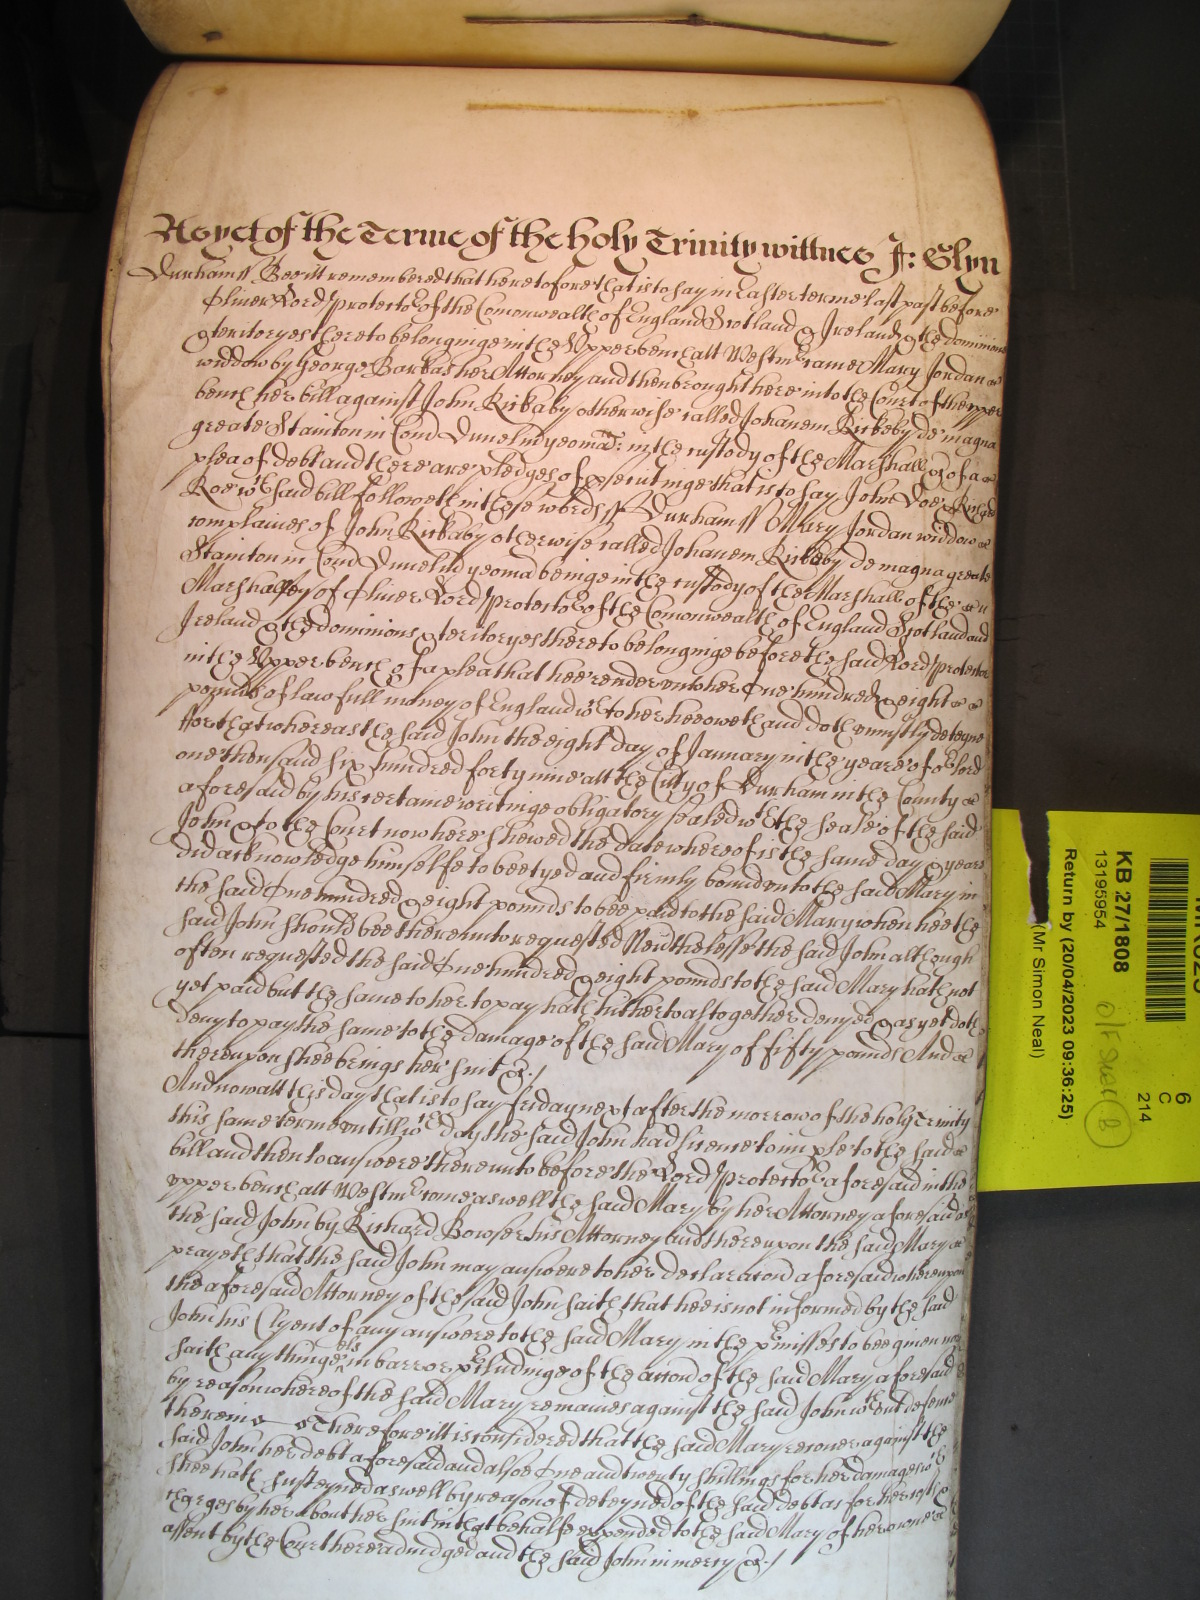 As yet of the Terme of the holy Trinity wittnes J: Glyn
Durham ss Bee itt remembered that heretofore that is to say in Easter terme last past before
Oliver Lord Protector of the Comonwealth of England Scotland & Ireland & the dominions
& territoryes thereto belonginge in the Upper bench att Westmr came Mary Jordan
widdow by George Barkas her Attorney and then brought here into the Court of the upper
bench her bill against John Kirkaby otherwise called Johanem Kirkeby de magna
greate Stainton in Com Dunelm yeoman: in the custody of the Marshall & of a
plea of debt and there are pledges of prosecutinge that is to say John Doe & Richard
Roe wch said bill followeth in these words ss Durham ss Mary Jordan widdow
complaines of John Kirkaby otherwise called Johanem Kirkeby de magna greate
Stainton in Com Dunelm yeoman beinge in the custody of the Marshall of the
Marshallsey of Oliver Lord Protector of the Comonwealth of England Scotland and
Ireland & the dominions & territoryes thereto belonginge before the said Lord Protector
in the Upper bench of a plea that hee render unto her One hundred & eight
pounds of lawfull money of England wch to her hee oweth and doth uniustly deteyne
ffor that whereas the said John the eight day of January in the yeare of or Lord
one thousand six hundred forty nine att the Citty of Durham in the County
aforesaid by his certaine writinge obligatory sealed wth the seale of the said
John & to the Court now here shewed the date whereof is the same day & yeare
did acknowledge himselfe to bee tyed and firmly bound unto the said Mary in
the said One hundred & eight pounds to bee paid to the said Mary when hee the
said John should bee thereunto requested Neuthelesse the said John although
often requested the said One hundred & eight pounds to the said Mary hath not
yet paid but the same to her to pay hath hitherto altogether denyed & as yet doth
deny to pay the same to the damage of the said Mary of fifty pounds And
thereupon shee brings her suit &c./
And now att this day that is to say fryday next after the morrow of the holy Trinity
this same terme untill wch day the said John had licence to imple to the said
bill and then to answere thereunto before the Lord Protector aforesaid in the
upper bench att Westmr come as well the said Mary by her Attorney aforesaid as
the said John by Richard Bowser his Attorney And thereupon the said Mary
prayeth that the said John may answere to her declaracion aforesaid whereupon
the aforesaid Attorney of the said John saith that hee is not informed by the said
John his Clyent of any answere to the said Mary in the pmisses to bee given nor
saith any thinge els in barr or pcludinge of the accion of the said Mary aforesaid
by reason whereof the said Mary remaines against the said John wthout defense
therein Therefore itt is considered that the said Mary recover against the
said John her debt aforesaid and alsoe One and twenty shillings for her damages wch
shee hath susteyned as well by reason of deteyned of the said debt as for her costs
charges by her about her suit in that behalfe expended to the said Mary of her owne
assent by the Court here adiudged and the said John in mercy &c./
KB 27/1808
13195954
Return by (20/04/2023 09:36:25)
(Mr Simon Neal)
6
C
214